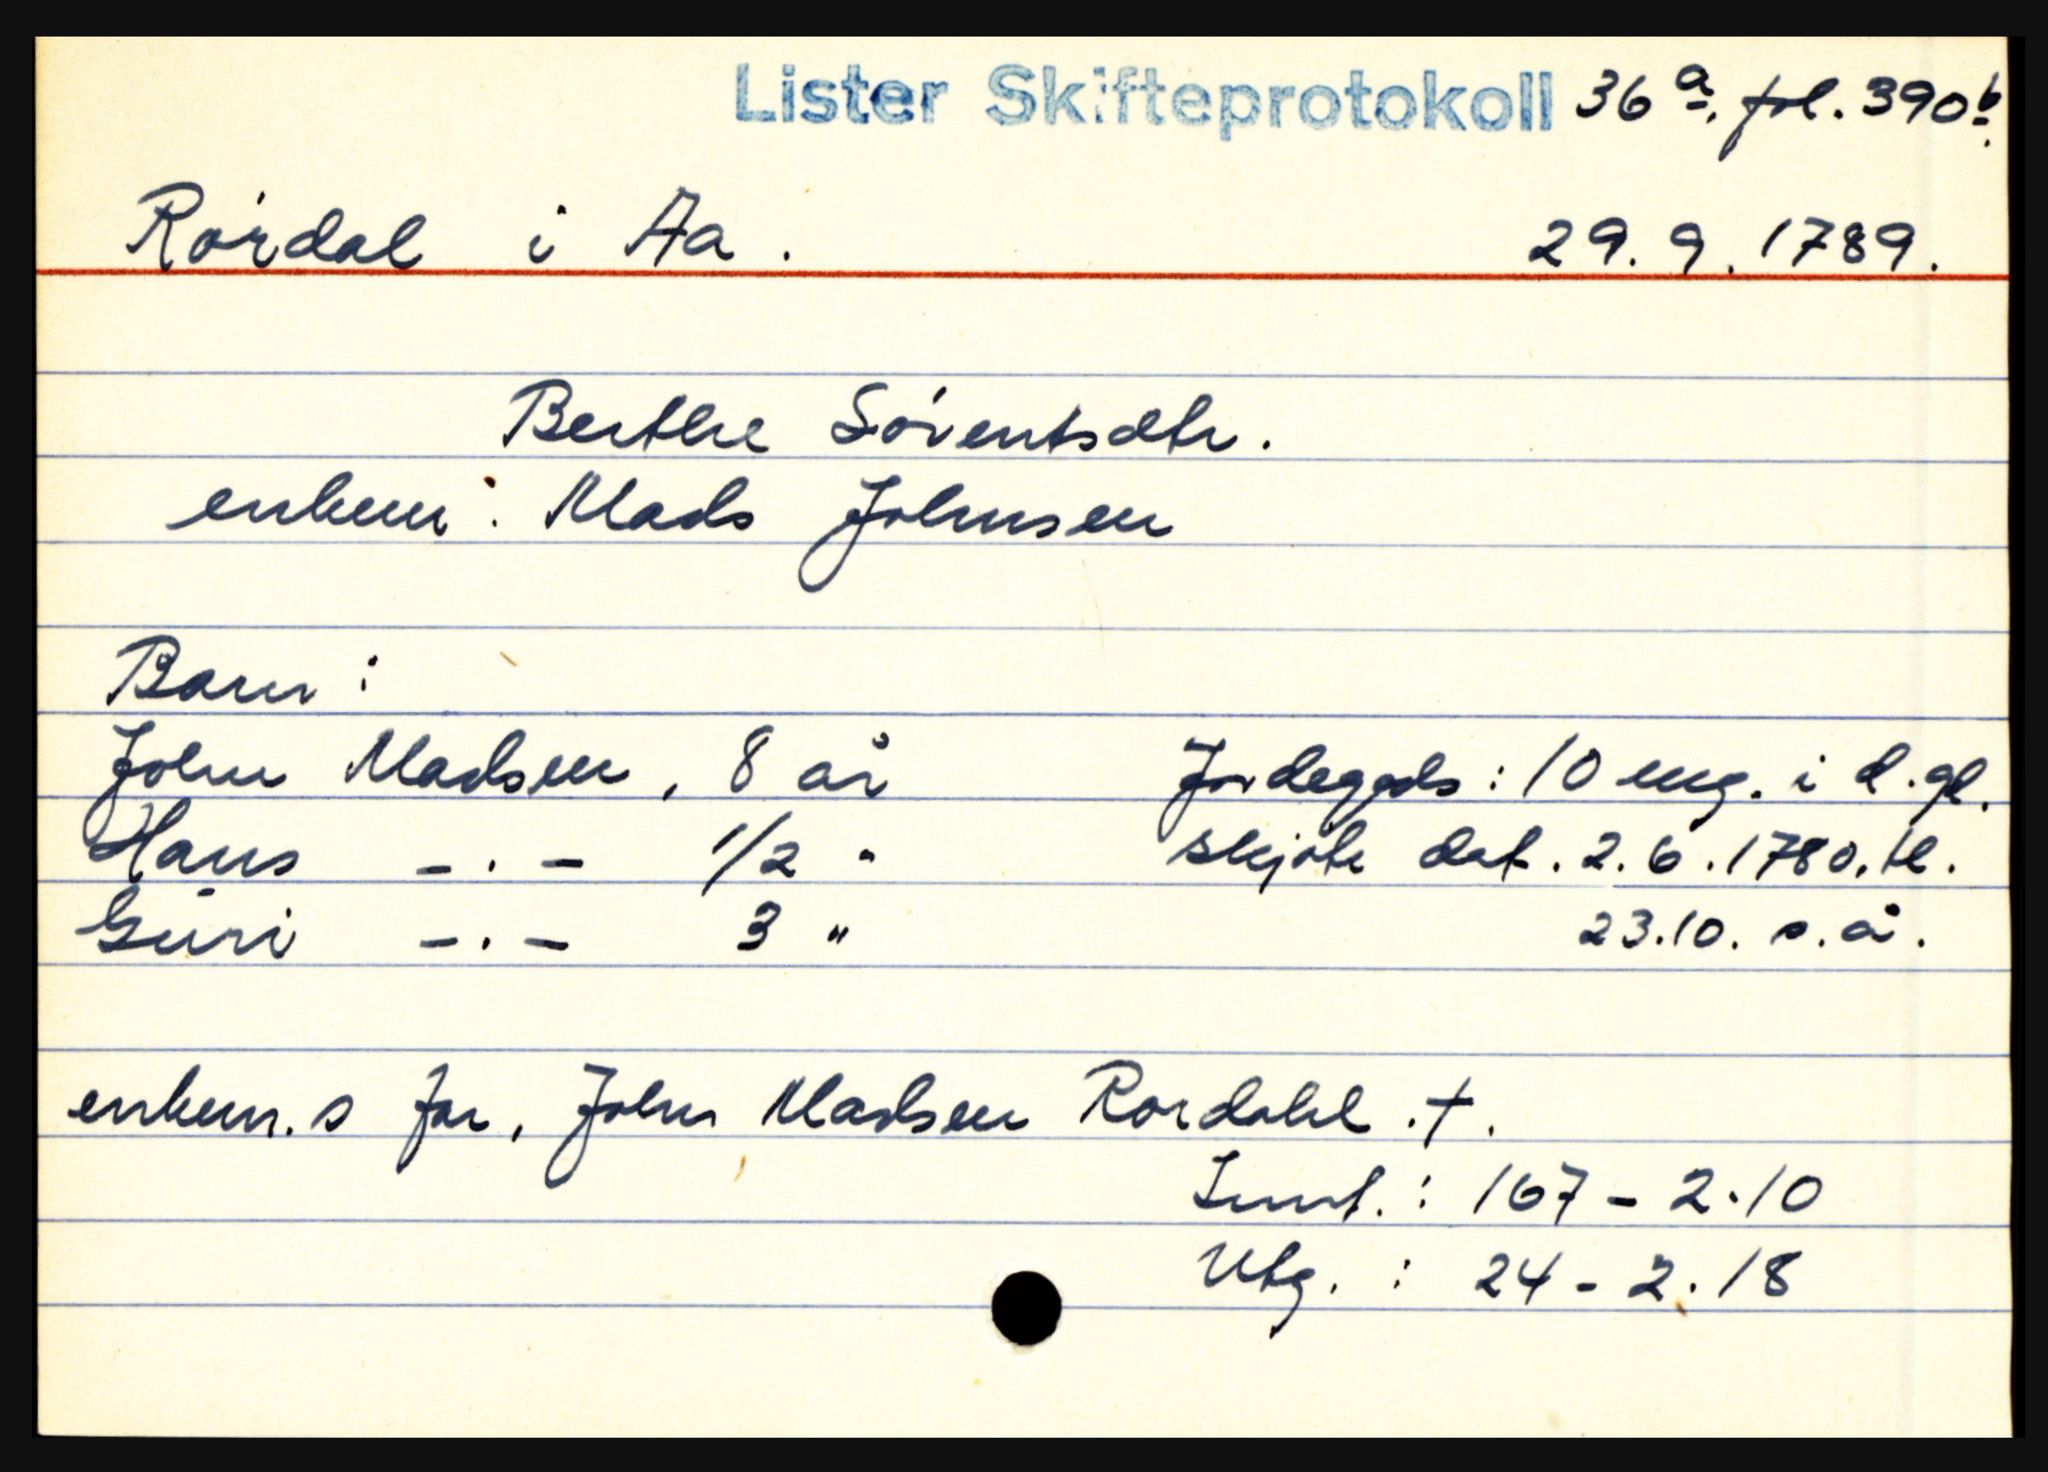 Lister Skifteprotokoll 36 a, fol. 390 b.
Rórdal i Aa. 29. 9. 1789.
Berthe Sóventsdtr.
enkem: Mads Johnsen
Barn:
John Madsen, 8 år Jordegods: 10 eng. i d. gl.
Hans -.- 1/2 " skjöte dat. 2.6.1780, tl.
Guri -.- 3 " 23.10. s.å.
enkem.s far, John Madsen Rordahl. †.
Innt.: 167 - 2.10
Utg.: 24 - 2.18